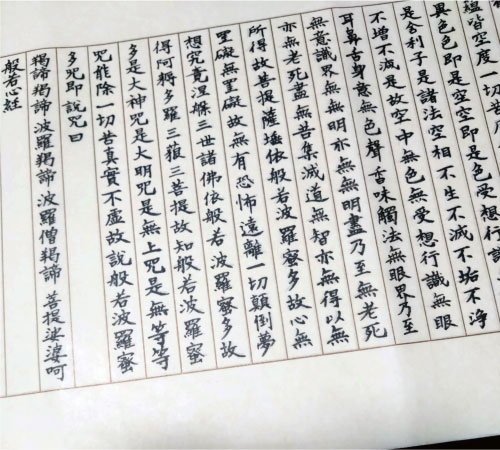 蘊皆空度一切
異色色即是空空即是色受想行識
是舍利子是諸法空相不生不滅不垢不净
不增不減是故空中無色無受想行識無眼
耳鼻舌身意無色聲香味觸法無眼界乃至
無意識界無無明亦無無明盡乃至無老死
亦無老死盡無苦集滅道無智亦無得以無
所得故菩提薩埵依般若波羅蜜多故心無
罣礙無罣礙故無有恐怖遠離一切顛倒夢
想究竟涅槃三世諸佛依般若波羅蜜多故
得阿耨多羅三藐三菩提故知般若波羅蜜
多是大神咒是大明咒是無上咒是無等等
咒能除一切苦真實不虛故說般若波羅蜜
多咒即說咒曰
羯諦羯諦波羅羯諦波羅僧羯諦 菩提娑婆呵
般若心経